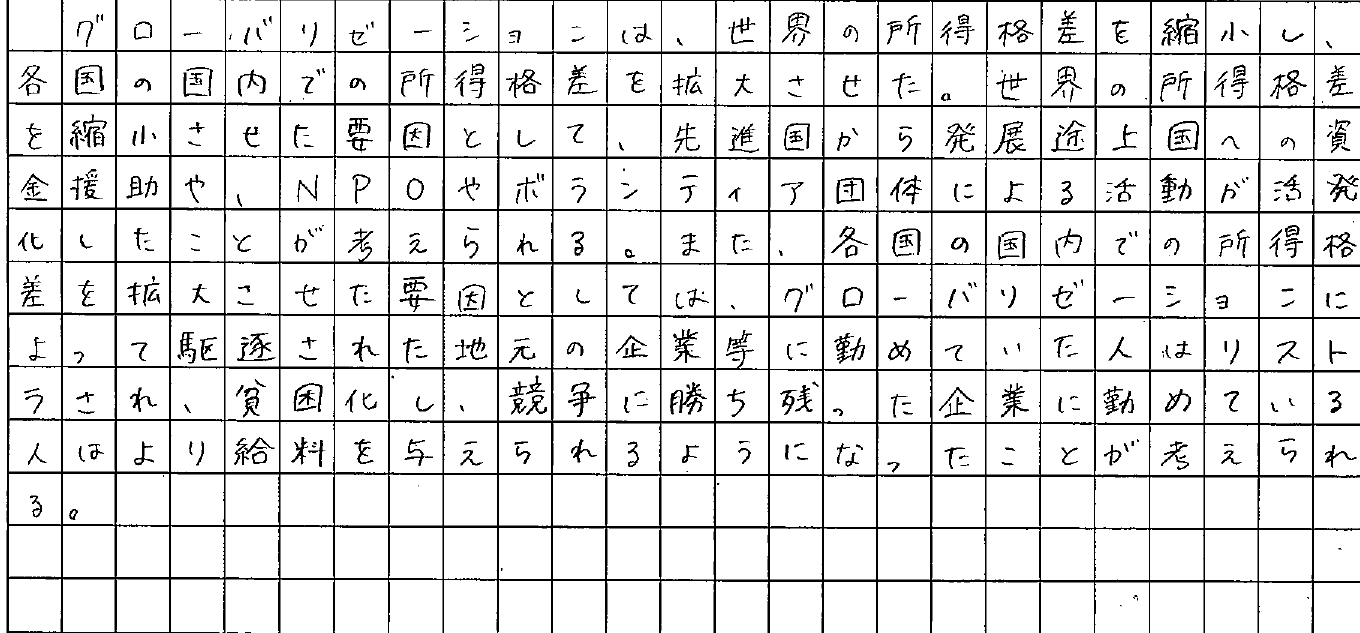 グローバリゼーションは、世界の所得格差を縮小し、
各国の国内での所得格差を拡大させた。世界の所得格差
を縮小させた要因として、先進国から発展途上国への資
金援助や、NPOやボランティア団体による活動が活発
化したことが考えられる。また、各国の国内での所得格
差を拡大させた要因としては、グローバリゼーションに
よって駆逐された地元の企業等に勤めていた人はリスト
ラされ、貧困化し、競争に勝ち残った企業に勤めている
人はより給料を与えられるようになったことが考えられ
る。